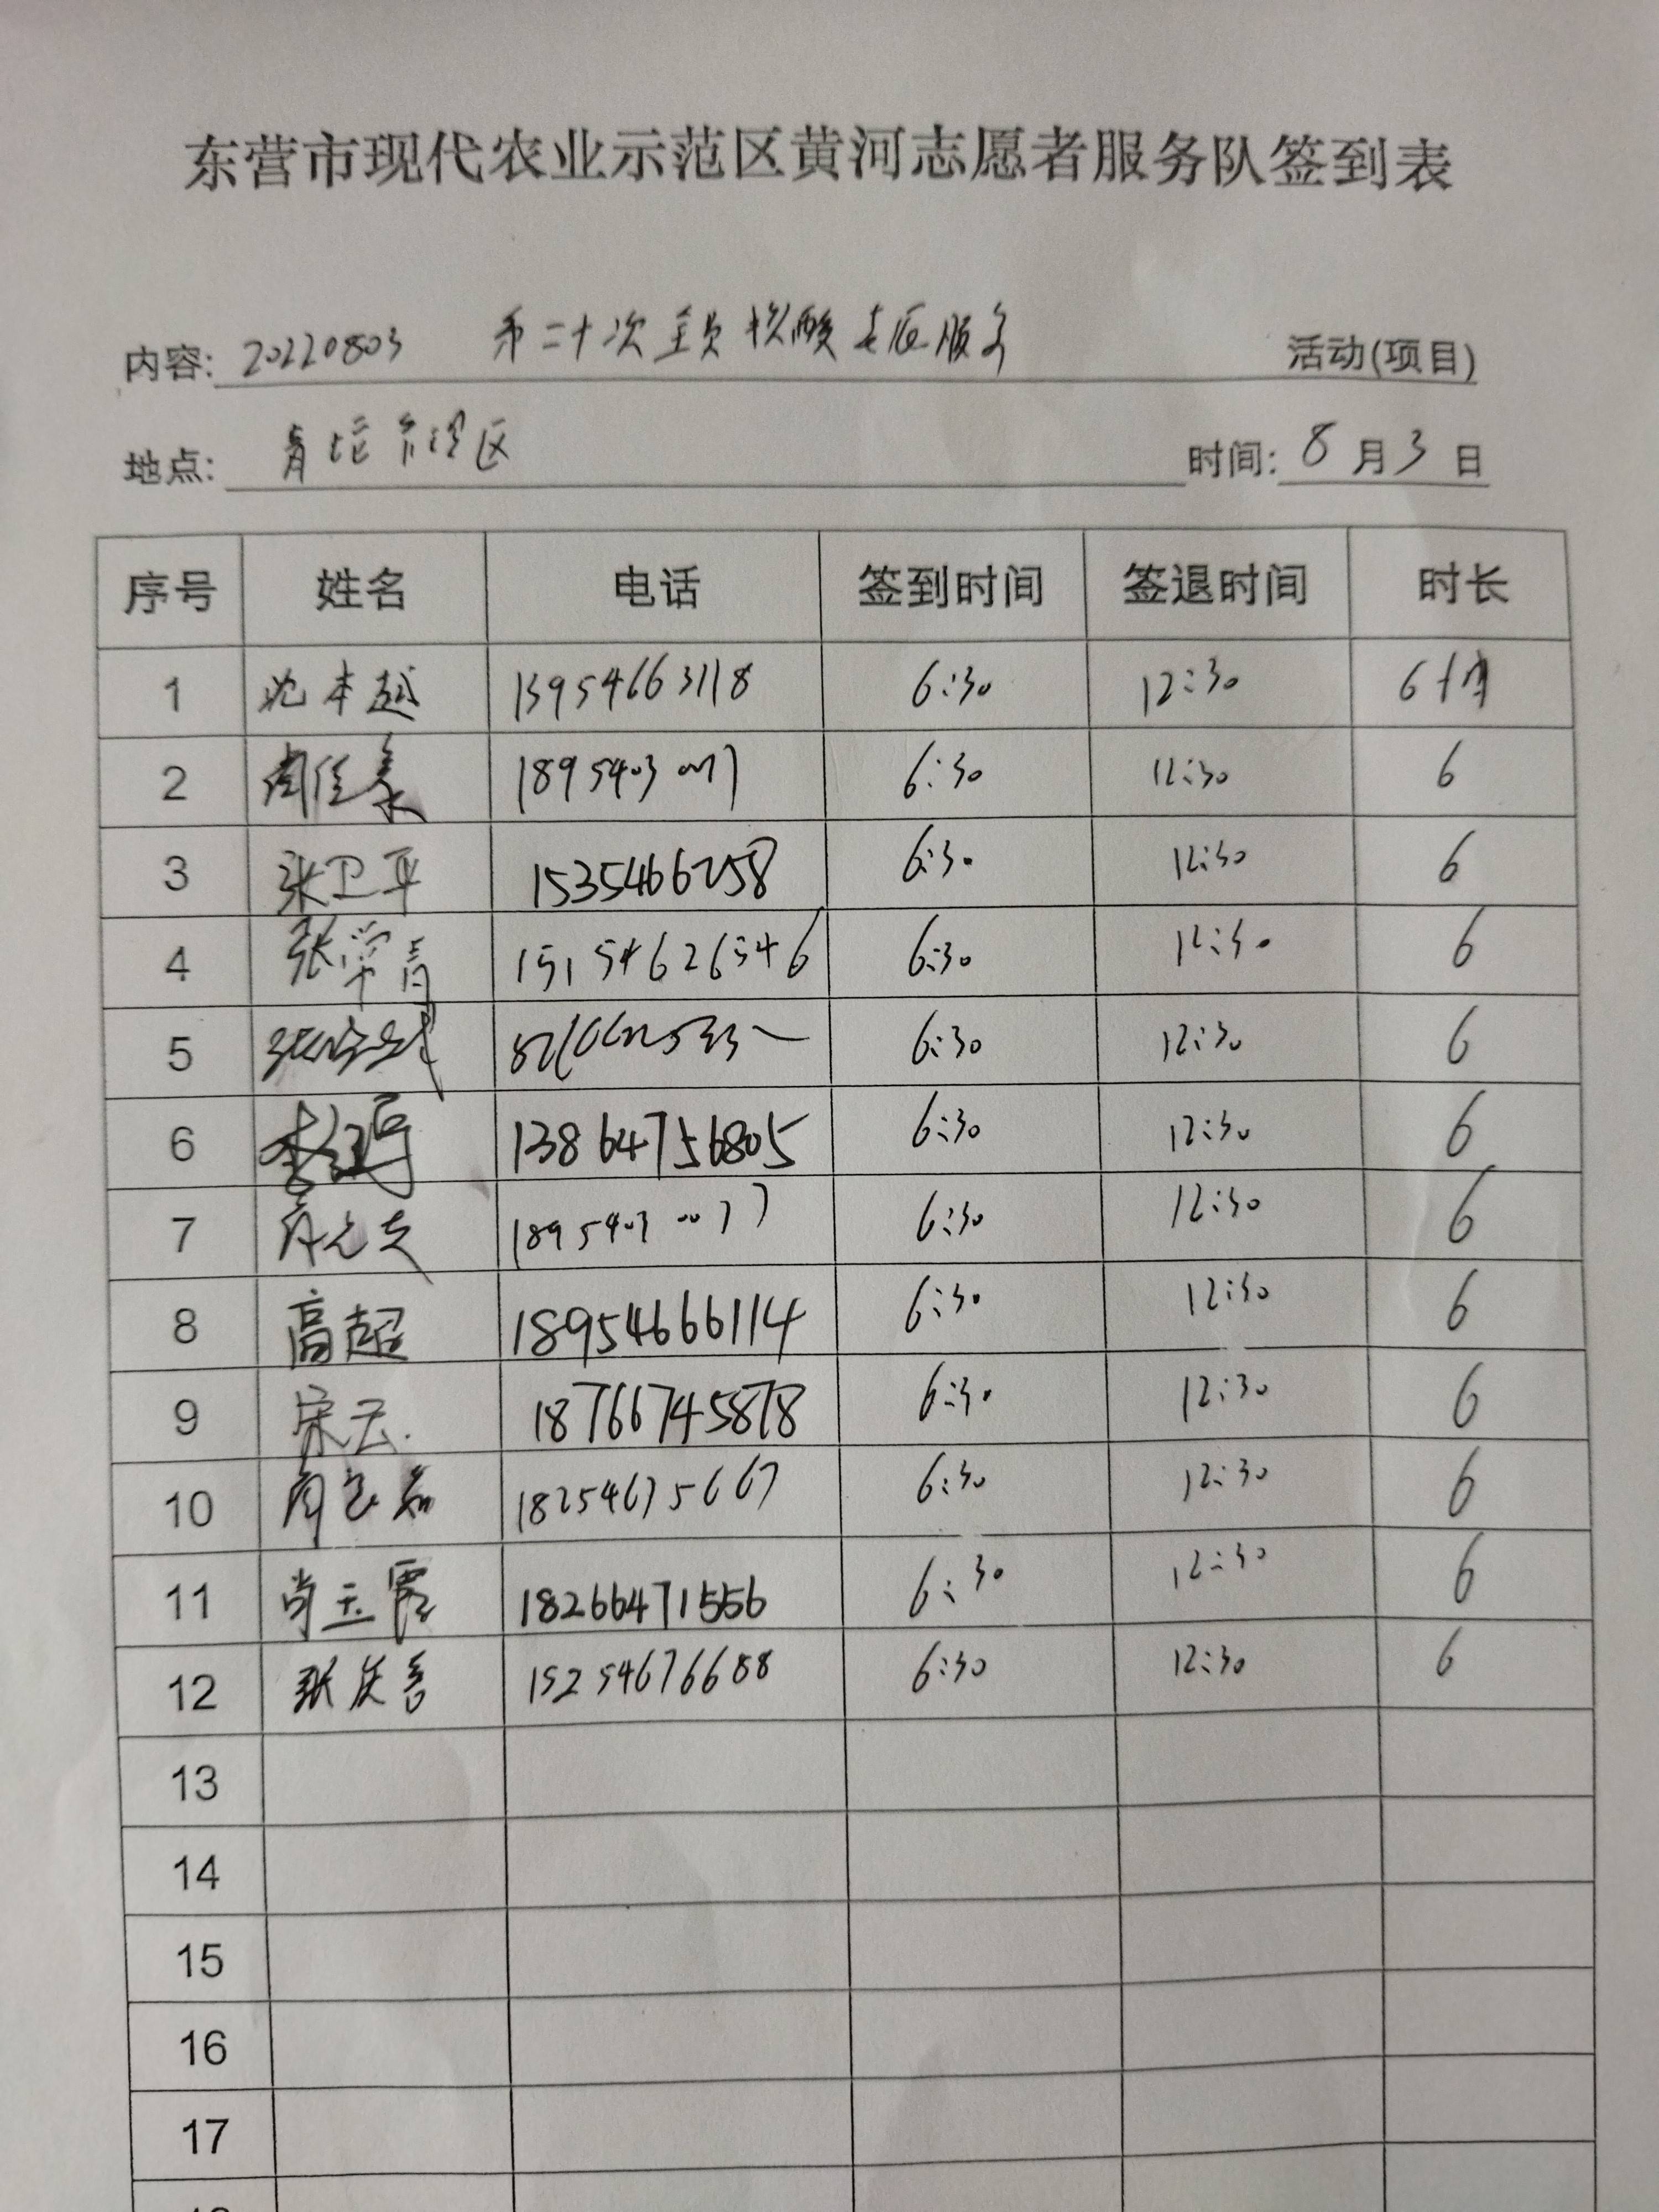 东营市现代农业示范区黄河志愿者服务队签到表
内容: 20220803 第二十次全员核酸志愿服务 活动(项目)
地点: 区 时间: 8月3日
序号 姓名 电话 签到时间 签退时间 时长
1 本超 13954663118 6:30 12:30 6小时
2 6:30 12:30 6
3 张卫平 1535466258 6:30 12:30 6
4 张学青 15154626546 6:30 12:30 6
5 6:30 12:30 6
6 13864756805 6:30 12:30 6
7 18954030077 6:30 12:30 6
8 高超 18954666114 6:30 12:30 6
9 宋云. 18766745878 6:30 12:30 6
10 18254675667 6:30 12:30 6
11 尚玉霞 18266471556 6:30 12:30 6
12 张 15254676688 6:30 12:30 6
13
14
15
16
17